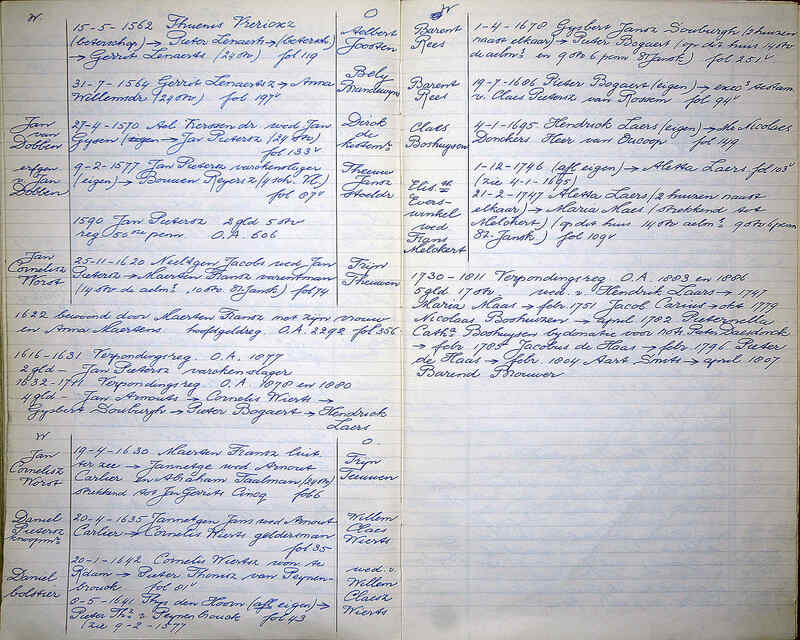 W
O
15-5-1562 Thuenis Vrerixsz
(beterschap) → Pieter Lenaerts → (betersch)
→ Gerrit Lenaerts (29 st) fol 119
Aelbert
Joosten
31-7-1564 Gerrit Lenaertsz → Anna
Willemsdr (29 st) fol 197v
Bely
Brandwyns
Jan
van
Dobben
27-4-1570 Ael Kerssendr wed Jan
Gysen (eigen → Jan Pietersz (29 st)
fol 133v
Dirck
de
erfgen
v Jan
Dobben
9-2-1577 Jan Pietersz varckenslager
(eigen) → Bouwen Reyersz
fol 87v
Theeuw
Jansz
1590 Jan Pietersz 2 gld 5 st
reg 50ste penn O.A. 606
Jan
Cornelisz
Worst
25-11-1620 Neeltgen Jacobs wed Jan
Pietersz → Maerten Fransz varentman
(14 st de aelm. 10 st St Jansk) fol 74
Trijn
Theuwen
1622 bewoond door Maerten Fransz met zijn vrouw
en Anna Maertens hoofdgeld reg. O.A. 2292 fol 356
1616-1631 Verpondingsreg. O.A. 1877
2 gld - Jan Pietersz varckenslager
1632-1711 Verpondingsreg. O.A. 1878 en 1880
4 gld - Jan Arnouts → Cornelis Wierts →
Gysbert Douburgh → Pieter Bogaert → Hendrick
Laers
W
O.
Jan
Cornelisz
Worst
19-4-1630 Maerten Fransz luit.
ter zee → Jannetge wed Arnout
Carlier en Abraham Taalman (24 st)
strekkend tot Jan Gerrits Cincq fol 6
Trijn
Teeuwen
Daniel
Pietersz
20-4-1635 Jannetgen Jans wed Arnout
Carlier → Cornelis Wierts geldersman
fol 35
Willem
Claes
Wierts
Daniel
bolster
20-1-1642 Cornelis Wiertsz
Rdam → Pieter Thomsz van Peynen-
brouck fol 81v
8-5-1641 Thys den Hoorn (afl eigen) →
Pieter Ths v Peynenbrouck fol 43
(zie 9-2-1577
wed. v.
Willem
Claesz
Wierts
W
Barent
Rees
1-4-1678 Gysbert Jansz Douburgh (2 huizen
naast elkaar) → Pieter Bogaert (op dit huis 14 st
de aelms en 9 st 6 penn St Jansk) fol 251v
Barent
Rees
19-7-1686 Pieter Bogaert (eigen) → execs testam
v. Claes Pietersz van Rossem fol 94v
Claes
Boshuysen
4-1-1695 Hendrick Laers (eigen) → Mr Nicolaes
Donckers Heer van fol 149
1-12-1746 (afl eigen) → Aletta Laers fol 103v
(zie 4-1-1695)
Elis
Evers-
winkel
wed
Frans
Melckert
21-2-1747 Aletta Laers (2 huizen naast
elkaar) → Maria Maes (strekkend tot
Melckert) (op dit huis 14 st aelms 9 st 6 penn
St. Jansk) fol 109v
1730-1811 Verpondingsreg. O.A. 1883 en 1886
5 gld 17 st wed. v. Hendrik Laers → 1747
Maria Maas → febr. 1751 Jacob Carius → okt 1779
Nicolaas Boshuizen → april 1782 Pieternella
Catha Boshuysen by donatie voor nots Peter
→ febr. 1785 Jacobus de Haas → febr 1796 Pieter
de Haas → febr. 1804 Aart Smits → april 1807
Barend Brouwer